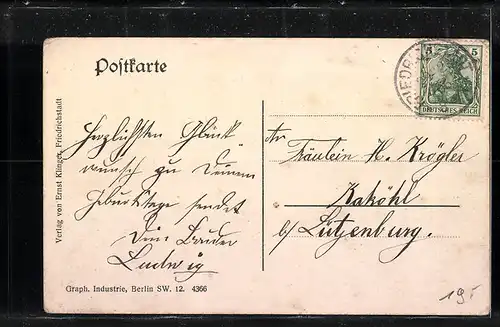 Postkarte
5
5
DEUTSCHES REICH
FRIEDR
Herzlichsten Glück
wunsch zu Deinem
Geburtstage sendet
Dein Bruder
Ludwig
An
Fräulein H. Krögler
Kaköhl
b/ Lütjenburg.
Verlag von Ernst Klinger, Friedrichstadt
Graph. Industrie, Berlin SW. 12. 4366
195